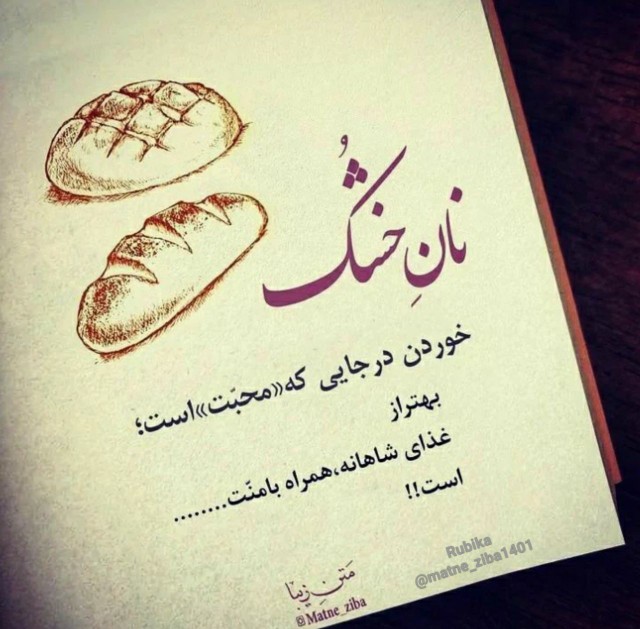 نانِ خشُک
خوردن درجایی که«محبّت»است؛
بهتراز
غذای شاهانه،همراه بامنّت........
است!!
Rubika
@matne_ziba1401
مَتنِ زیبا
@Matne_ziba